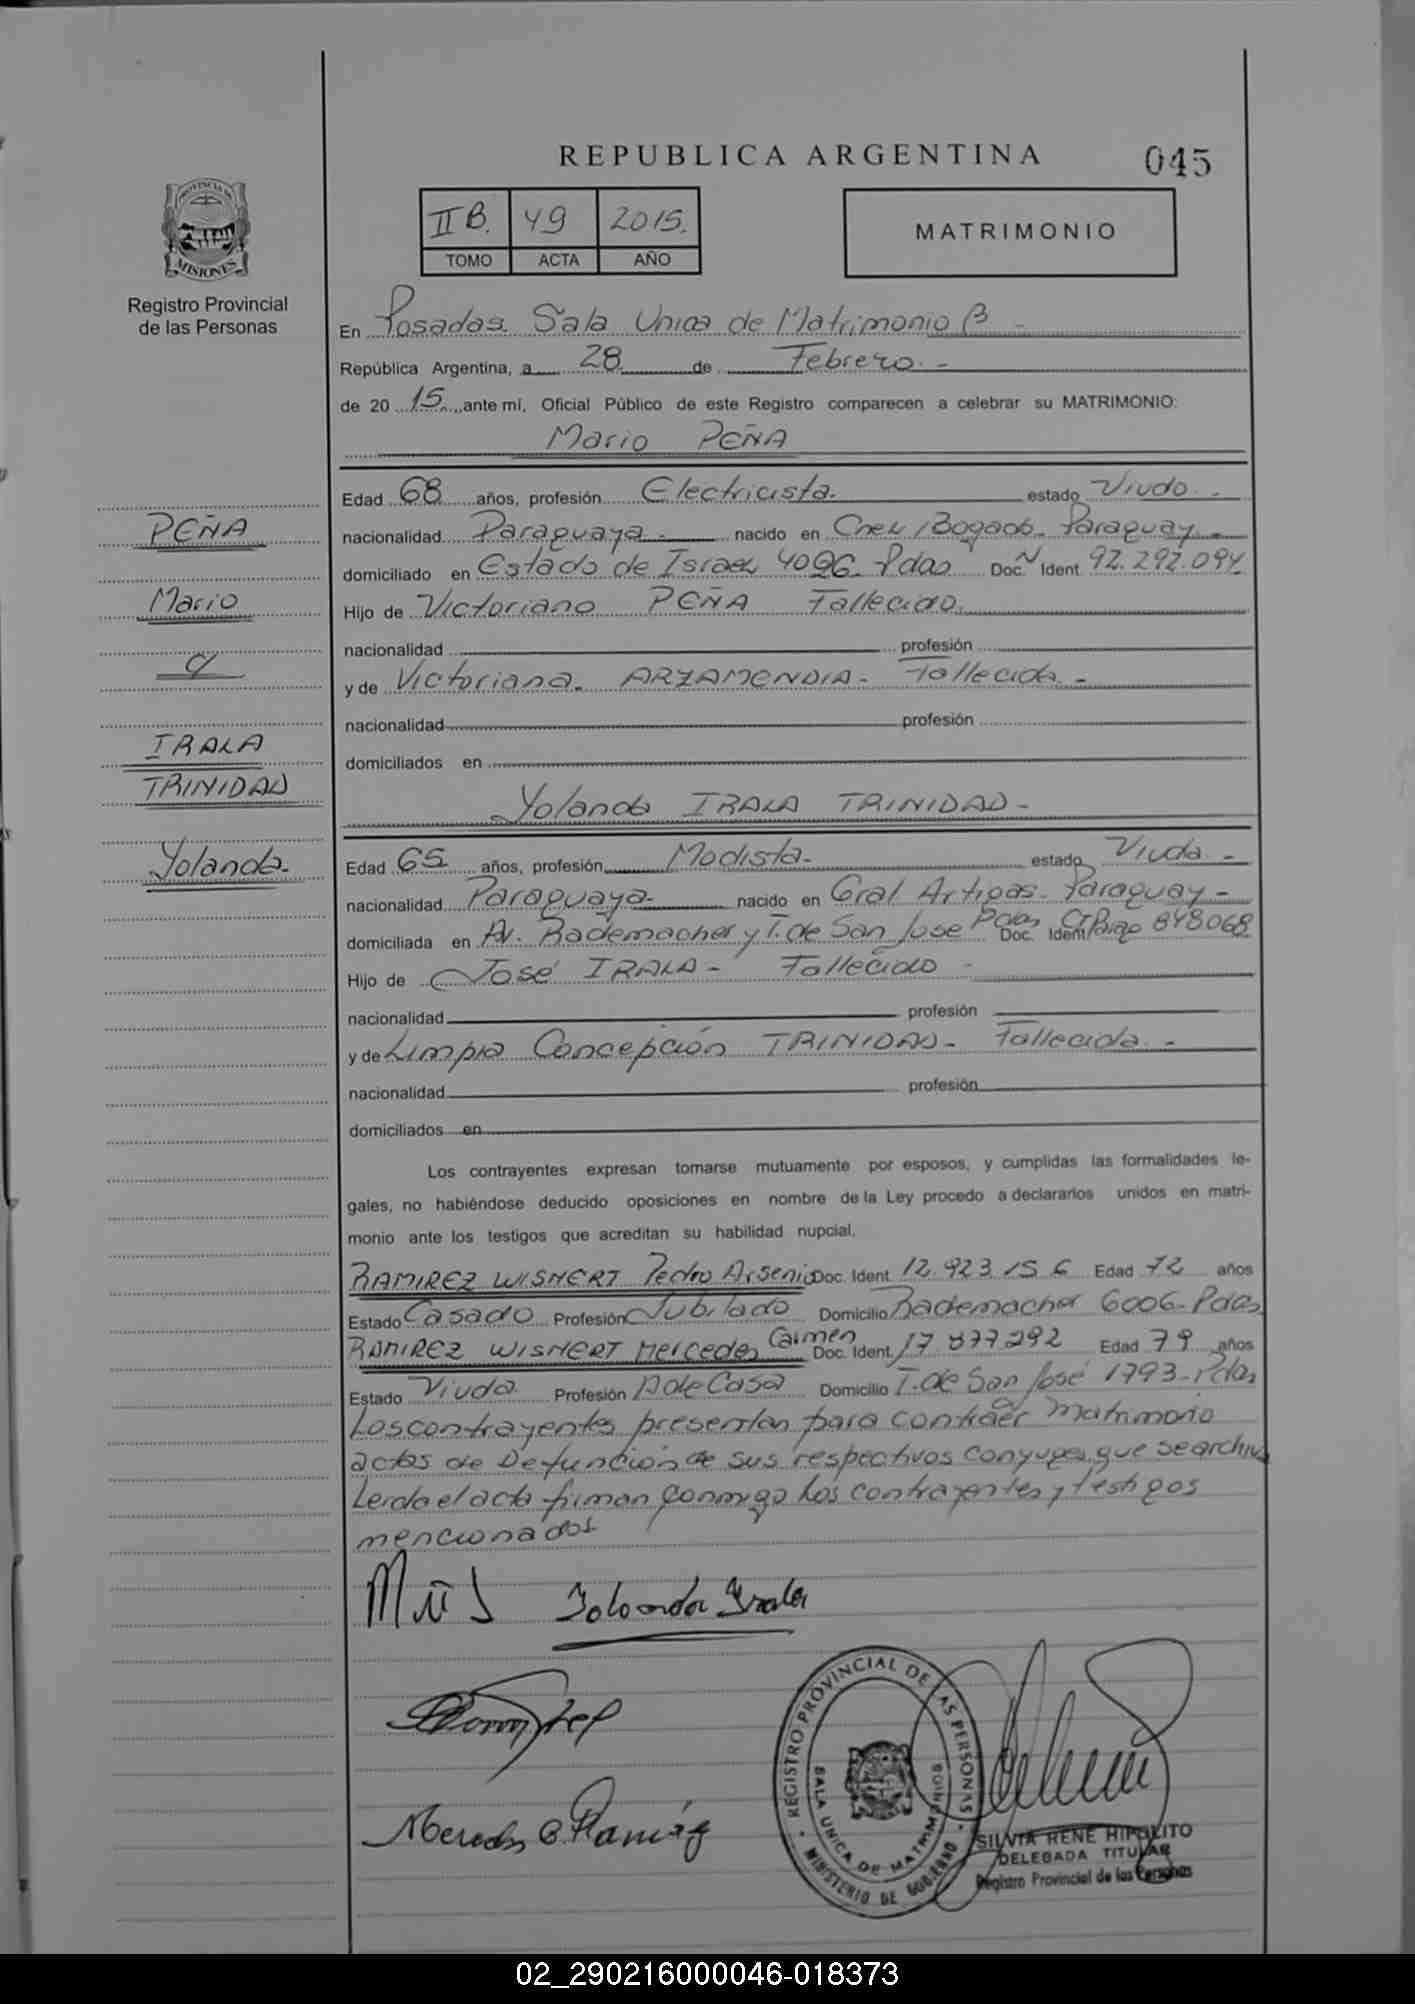 REPUBLICA ARGENTINA
045
PROVINCIA DE
MISIONES
Registro Provincial
de las Personas
II B. 49 2015.
TOMO ACTA AÑO
MATRIMONIO
En Posadas. Sala Unica de Matrimonio B -
República Argentina, a 28 de Febrero. -
de 20 15 ante mí, Oficial Público de este Registro comparecen a celebrar su MATRIMONIO:
Mario PEÑA
Edad 68 años, profesión Electricista. estado Viudo. -
nacionalidad Paraguaya - nacido en Cnel Bogado - Paraguay -
domiciliado en Estado de Israel 4096 - Pdas Doc. N Ident. 92.292.094
Hijo de Victoriano PEÑA Fallecido.
nacionalidad profesión
y de Victoriana - ARZAMENDIA - Fallecida -
nacionalidad profesión
domiciliados en
PEÑA
Mario
c/
IRALA
TRINIDAD
Yolanda -
Yolanda IRALA TRINIDAD -
Edad 65 años, profesión Modista - estado Viuda. -
nacionalidad Paraguaya - nacido en Gral Artigas - Paraguay -
domiciliada en Av. Rademacher y T. de San Jose Pdas Doc. Ident. 848.068
Hijo de José IRALA - Fallecido -
nacionalidad profesión
y de Limpia Concepción TRINIDAD - Fallecida. -
nacionalidad profesión
domiciliados en
Los contrayentes expresan tomarse mutuamente por esposos, y cumplidas las formalidades le-
gales, no habiéndose deducido oposiciones en nombre de la Ley procedo a declararlos unidos en matri-
monio ante los testigos que acreditan su habilidad nupcial.
RAMIREZ WISNERT Pedro Arsenio Doc. Ident. 12.923.156 Edad 72 años
Estado Casado Profesión Jubilado Domicilio Rademacher 6006 - Pdas
RAMIREZ WISNERT Mercedes Carmen Doc. Ident. 17.877.292 Edad 79 años
Estado Viuda Profesión A de Casa Domicilio T. de San José 1793 - Pdas
Los contrayentes presentan para contraer matrimonio
actas de Defunción de sus respectivos conyuges que se archiva
Leida el acta firman conmigo los contrayentes y testigos
mencionados
Yolanda Irala
Mercedes C. Ramirez
REGISTRO PROVINCIAL DE LAS PERSONAS
SALA UNICA DE MATRIMONIOS
MINISTERIO DE GOBIERNO
SILVIA RENE HIPOLITO
DELEGADA TITULAR
Registro Provincial de las Personas
02_290216000046-018373